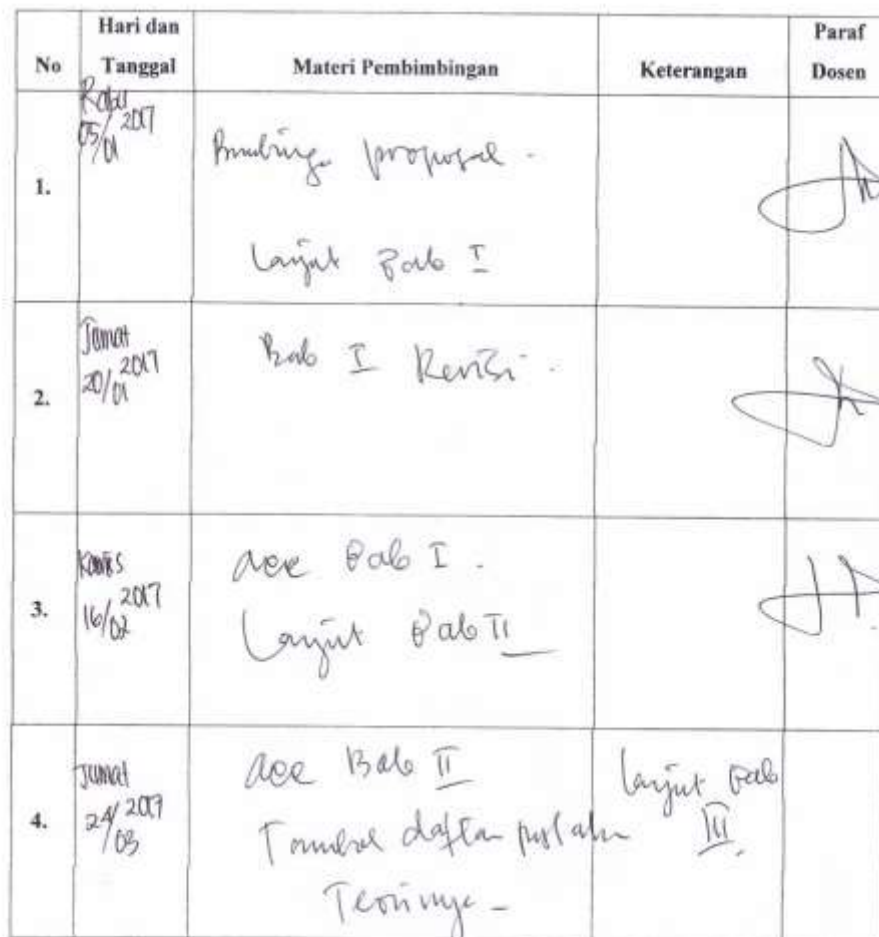 No Hari dan Tanggal Materi Pembimbingan Keterangan Paraf Dosen
1.
Rabu
05/01 2017
proposal -
Lanjut Bab I
2.
Jumat
20/01 2017
Bab I Revisi -
3.
Kamis
16/02 2017
acc Bab I .
Lanjut Bab II
4.
Jumat
24/03 2017
acc Bab II
Tambah daftar pustaka
Teorinya -
Lanjut Bab
III.